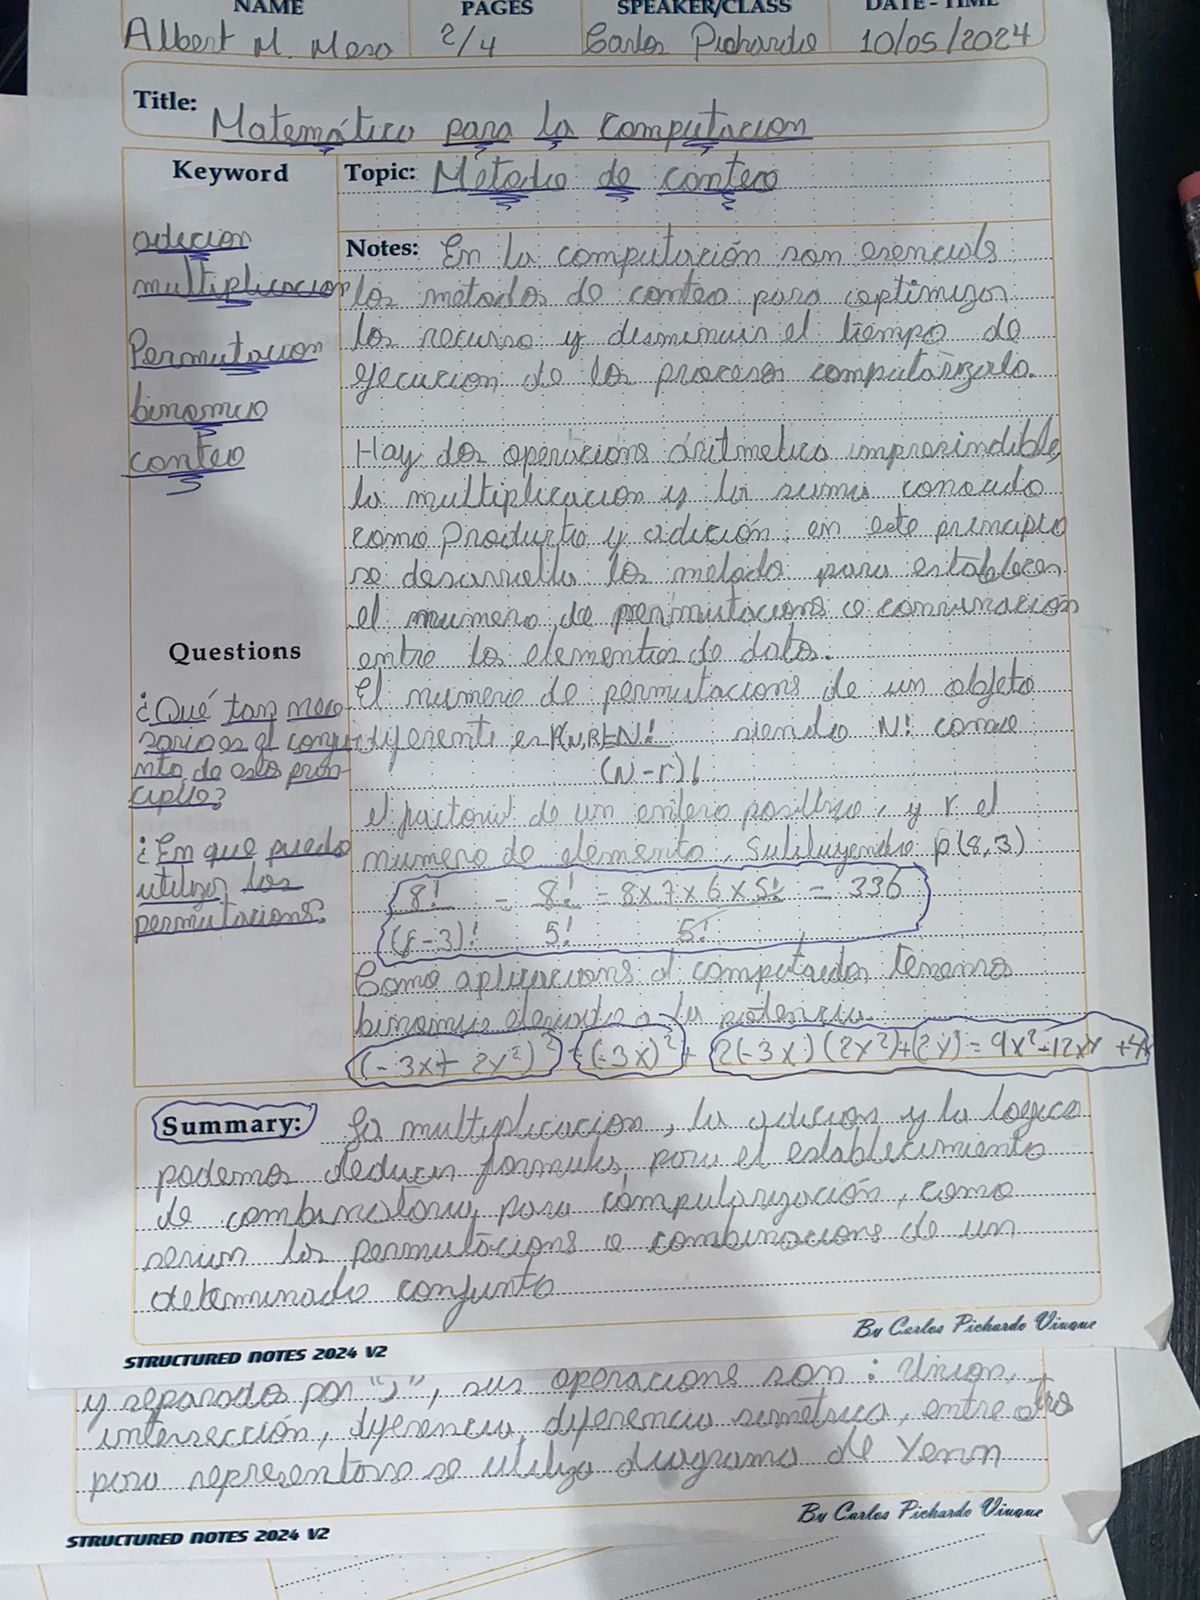 NAME PAGES SPEAKER/CLASS DATE-TIME
Albert M. Mora 2/4 Carlos Pichardo 10/05/2024
Title: Matemático para la computacion
Keyword
adicion
multiplicacion
Permutacion
binomio
conteo
Topic: Método de conteo
Notes: En la computación son esencials
los metodos de conteo para optimizar
los recurso y disminuir el tiempo de
ejecucion de los procesos computarizado.
Hay dos operacions áritmetica improsindible,
la multiplicacion y la suma conocido
como Producto y adición. en este principio
se desarrolla los metodo para establecer
el numero de permutacions o convinación
entre los elementos de dato.
El numero de permutacions de un objeto
diferente es P(N,R)=N! siendo N! como
(N-r)!
el factorial de un entero positivo, y r el
numero de elemento, Sustituyendo P(8,3)
8! = 8! = 8x7x6x5! = 336
(8-3)! 5! 5!
Como aplicacions al computador tenemos
binomio elevado a la potencia.
(-3x+2y²)² = (-3x)² + 2(-3x)(2y²)+(2y) = 9x²-12xy+4
Questions
¿Qué tan nece
sario es el conju
nto de esto prin-
cipio?
¿En que puedo
utilizar las
permutacions?
Summary: La multiplicacion, la adicion y la logica
podemos deducir formulas para el establecimiento
de combinatoria para computarización, como
serian las permutacions o combinacions de un
determinado conjunto
By Carlos Pichardo Viuque
STRUCTURED NOTES 2024 V2
y separados por ",", sus operacions son: Union,
intersección, diferencia, diferencia simetrica, entre otros
para representarse se utiliza diagrama de Venn
By Carlos Pichardo Viuque
STRUCTURED NOTES 2024 V2